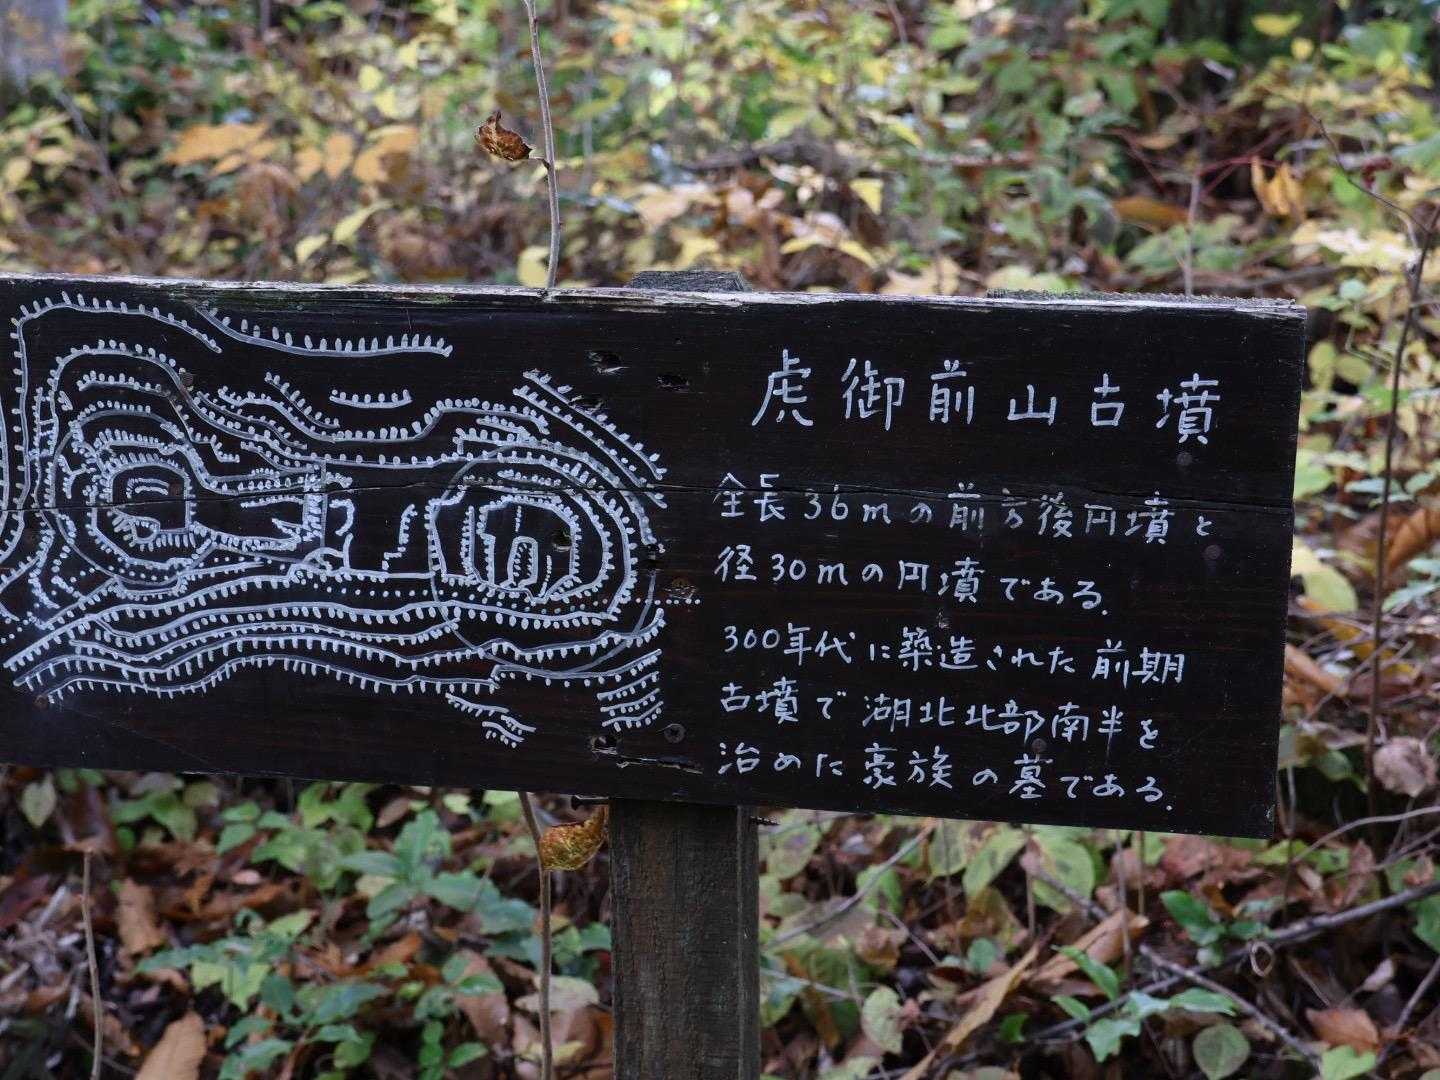 虎御前山古墳
全長36mの前方後円墳と
径30mの円墳である。
300年代に築造された前期
古墳で湖北北部南半を
治めた豪族の墓である。